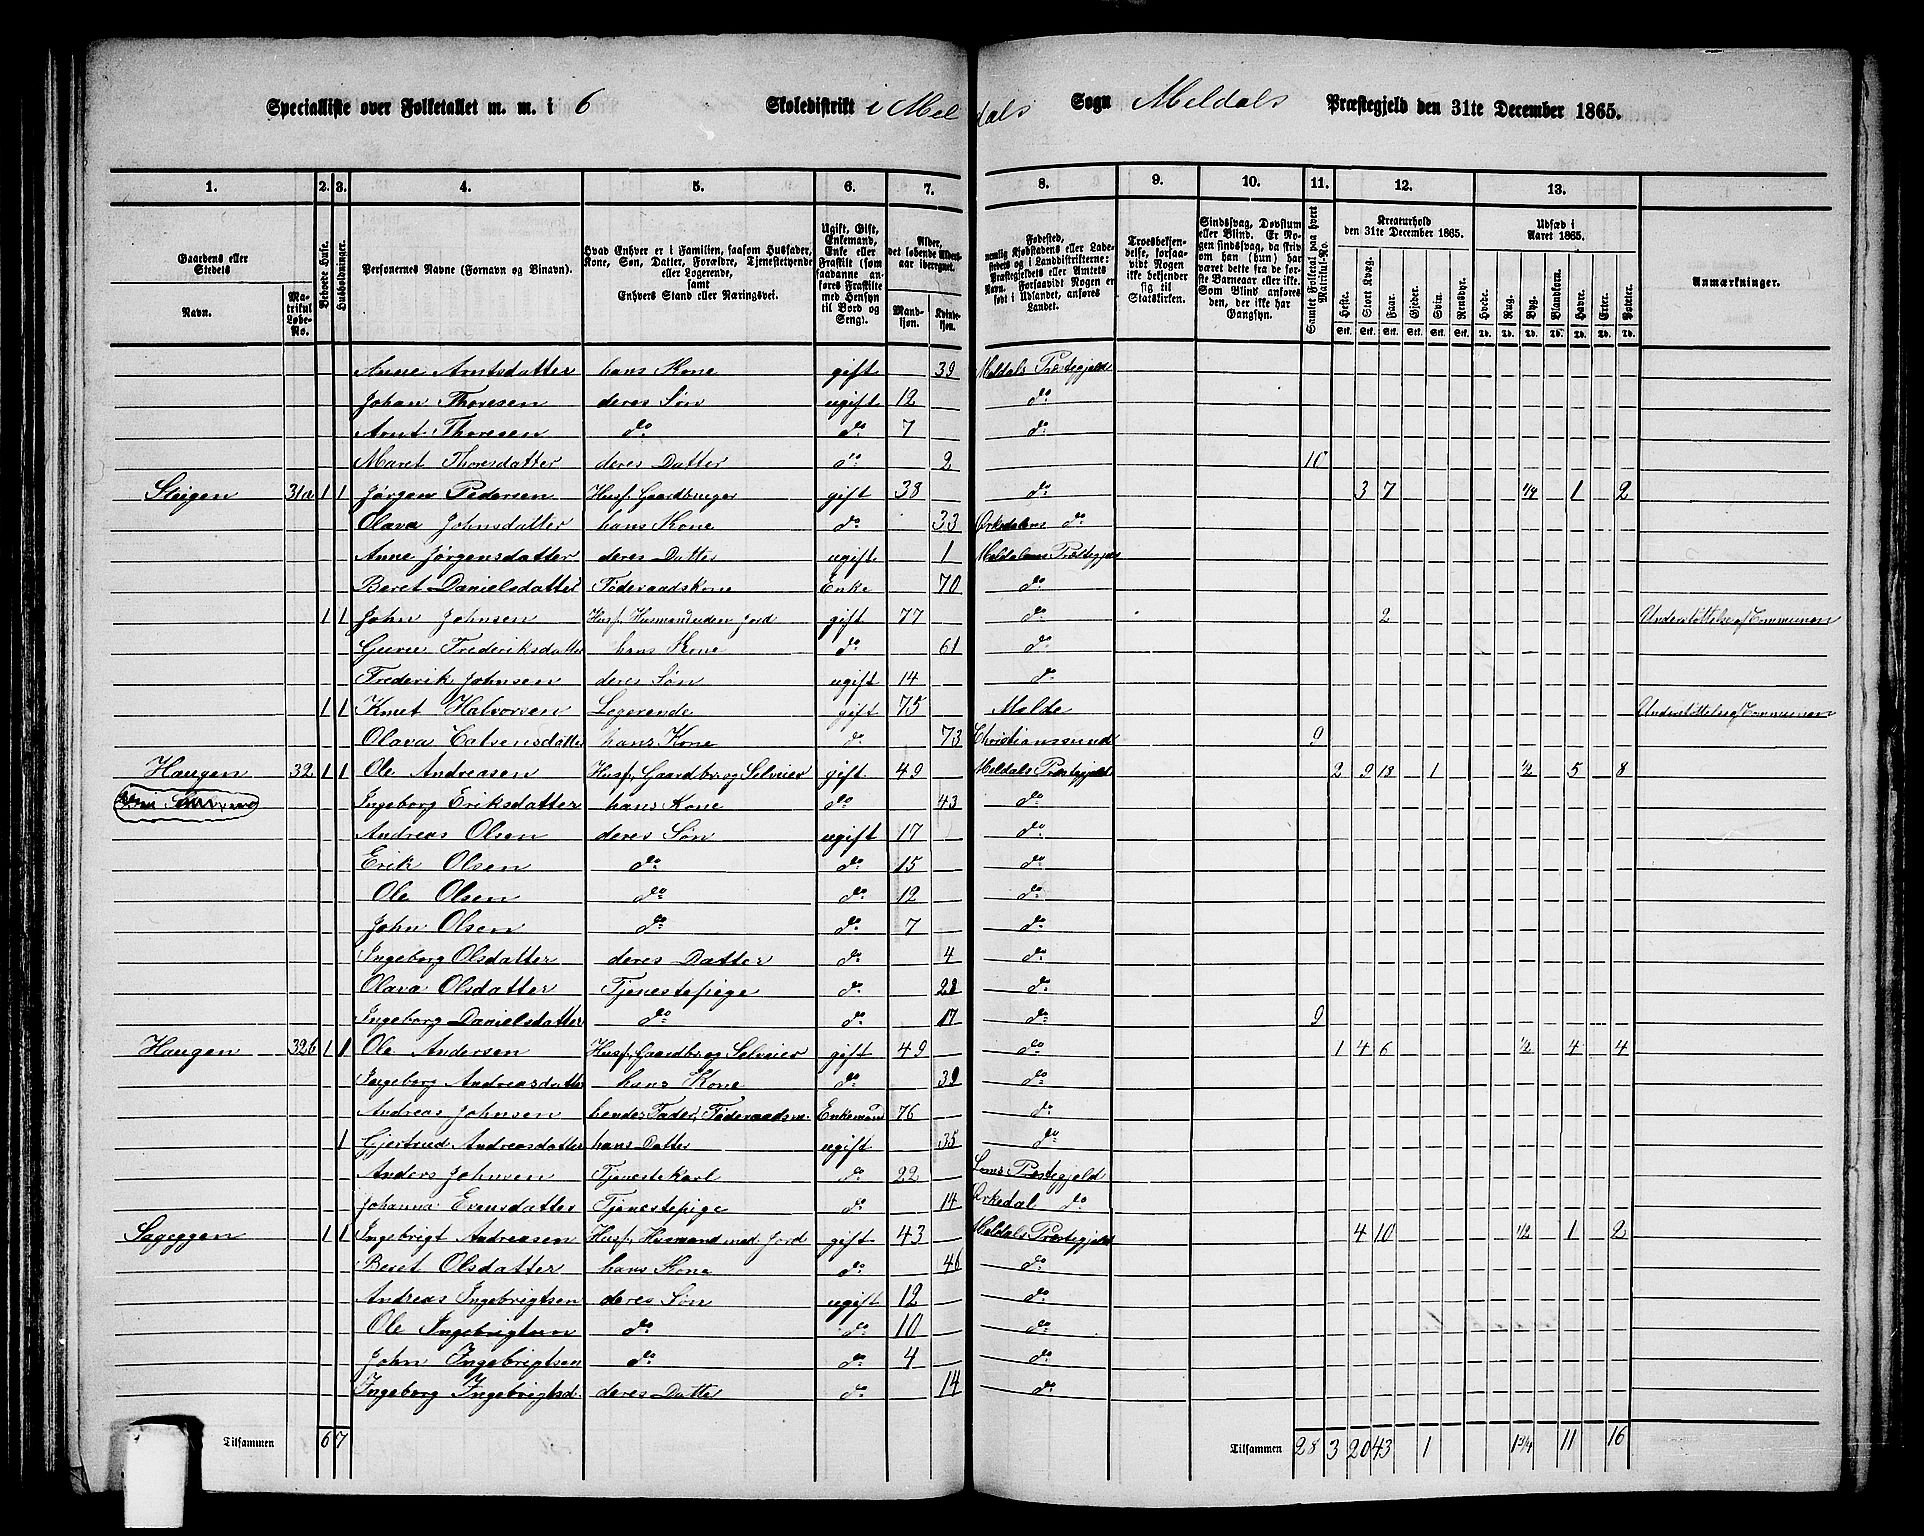 Specialliste over Folketallet m. m. i 6 Skoledistrikt i Meldals Sogn Meldals Præstegjeld den 31te December 1865.
1. 2. 3. 4. 5. 6. 7. 8. 9. 10. 11. 12. 13.
Gaardens eller Stedets Navn. Matrikul Løbe-No. Beboede Huse. Husholdninger. Personernes Navne (Fornavn og Binavn). Hvad Enhver er i Familien, saasom Husfader, Kone, Søn, Datter, Forældre, Tjenestetyende eller Logerende, samt Enhvers Stand eller Næringsvei. Ugift, Gift, Enkemand, Enke eller Fraskilt (som saadanne anføres Fraskilte med Hensyn til Bord og Seng). Alder, det løbende Aldersaar iberegnet. Mandkjøn. Kvindekjøn. Fødested, nemlig Kjøbstadens eller Ladestedets og i Landdistrikterne: Præstegjeldets eller Amtets Navn. Forsaavidt Nogen er født i Udlandet, anføres Landet. Troesbekjendelse, forsaavidt Nogen ikke bekjender sig til Statskirken. Sindssvag, Døvstum eller Blind. Er Nogen sindssvag, da skriv om han (hun) har været dette fra de første Barneaar eller ikke. Som Blind anføres den, der ikke har Gangsyn. Samlet Folketal paa hvert Matrikul-No. Kreaturhold den 31te December 1865. Heste. Stort Kvæg. Faar. Gjeder. Svin. Rensdyr. Udsæd i Aaret 1865. Hvede. Rug. Byg. Blandkorn. Havre. Erter. Poteter. Anmærkninger.
Anne Arntsdatter hans Kone gift 39 Meldals Præstegjeld
Johan Thoresen deres Søn ugift 12 do
Arnt Thoresen do do 7 do
Maret Thoresdatter deres Datter do 2 10
Steigen 31a 1 1 Jørgen Pedersen Husf. Gaardbruger gift 38 do 3 7 1/4 1 2
Olava Johnsdatter hans Kone do 33 Orkedalens do
Anne Jørgensdatter deres Datter ugift 1 Meldalens Præstegjeld
Beret Danielsdatter Føderaadskone Enke 70 do
1 1 John Johnsen Husf. Husmand uden Jord gift 77 do 2 Understøttelse af Communen
Guru Frederiksdatter hans Kone do 61 do
Frederik Johnsen deres Søn ugift 14 do
1 1 Knut Halvorsen Logerende gift 75 Molde Understøttelse af Communen
Olava hans Kone do 73 Christianssund 9
Haugen 32 1 1 Ole Andreasen Husf. Gaardbr. og Selveier gift 49 Meldals Præstegjeld 2 9 18 1 1/2 5 8
Ingeborg Eriksdatter hans Kone do 43 do
Andreas Olsen deres Søn ugift 17 do
Erik Olsen do do 15 do
Ole Olsen do do 12 do
John Olsen do do 7 do
Ingeborg Olsdatter deres Datter do 4 do
Olava Olsdatter Tjenestepige do 28 do
Ingeborg Danielsdatter do do 17 do 9
Haugen 32b 1 1 Ole Andersen Husf. Gaardbr. og Selveier gift 49 do 1 4 6 1/2 4 4
Ingeborg Andreasdatter hans Kone do 39 do
Andreas Johnsen hendes Fader, Føderaadsm. Enkemand 76 do
1 Gjertrud Andreasdatter hans Datter ugift 35 do
Anders Johnsen Tjenestekarl do 22 Loms Præstegjeld
Johanna Evensdatter Tjenestepige do 14 Orkedal do
Sageggen 1 1 Ingebrigt Andreasen Husf. Husmand med Jord gift 43 Meldals Præstegjeld 4 10 1/2 1 2
Beret Olsdatter hans Kone do 46 do
Andreas Ingebrigtsen deres Søn ugift 12 do
Ole Ingebrigtsen do do 10 do
John Ingebrigtsen do do 4 do
Ingeborg Ingebrigtsd. deres Datter do 14 do
Tilsammen 6 7 Tilsammen 28 3 20 43 1 1 3/4 11 16